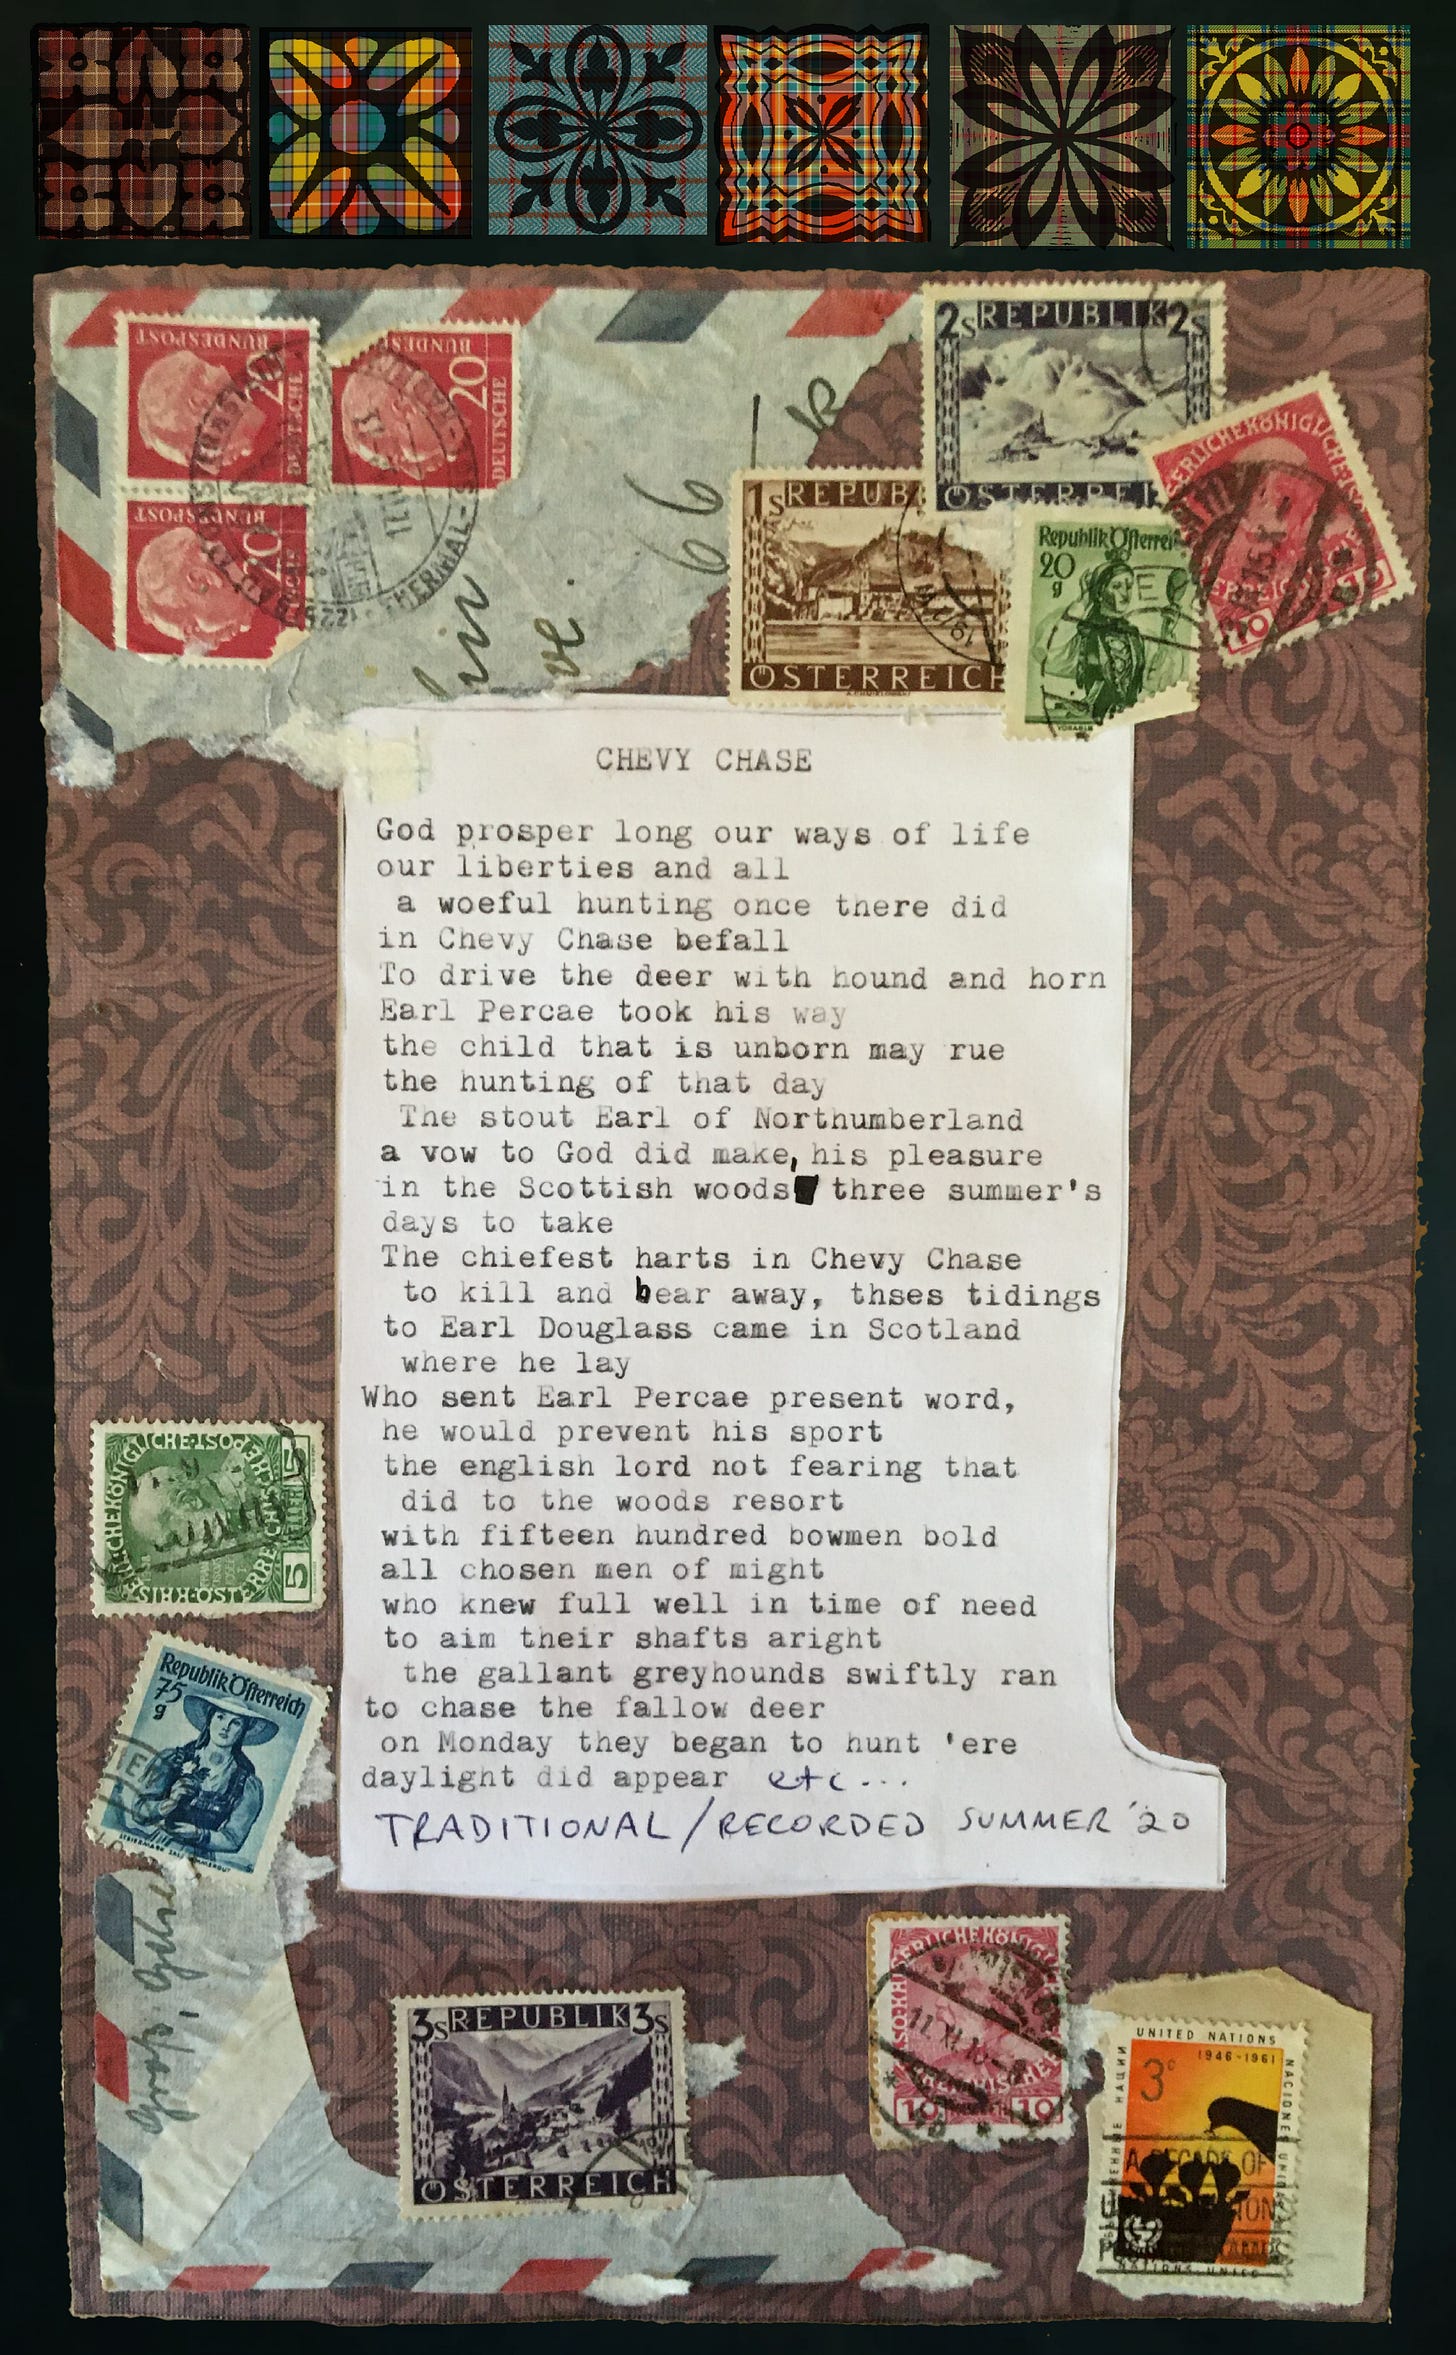 DEUTSCHE BUNDESPOST 20
DEUTSCHE BUNDESPOST 20
BUNDESPOST 20
2s REPUBLIK 2s
ÖSTERREI
1s REPUB
ÖSTERREICH
Republik Österrei
20
g
10
CHEVY CHASE
God prosper long our ways of life
our liberties and all
a woeful hunting once there did
in Chevy Chase befall
To drive the deer with hound and horn
Earl Percae took his way
the child that is unborn may rue
the hunting of that day
The stout Earl of Northumberland
a vow to God did make, his pleasure
in the Scottish woods three summer's
days to take
The chiefest harts in Chevy Chase
to kill and bear away, thses tidings
to Earl Douglass came in Scotland
where he lay
Who sent Earl Percae present word,
he would prevent his sport
the english lord not fearing that
did to the woods resort
with fifteen hundred bowmen bold
all chosen men of might
who knew full well in time of need
to aim their shafts aright
the gallant greyhounds swiftly ran
to chase the fallow deer
on Monday they began to hunt 'ere
daylight did appear etc...
TRADITIONAL/RECORDED SUMMER '20
5
Republik Österreich
75
g
3s REPUBLIK 3s
ÖSTERREICH
10 10
UNITED NATIONS
1946-1961
3c
NACIONES UNIDAS
A DECADE OF
NATIONS UNIES